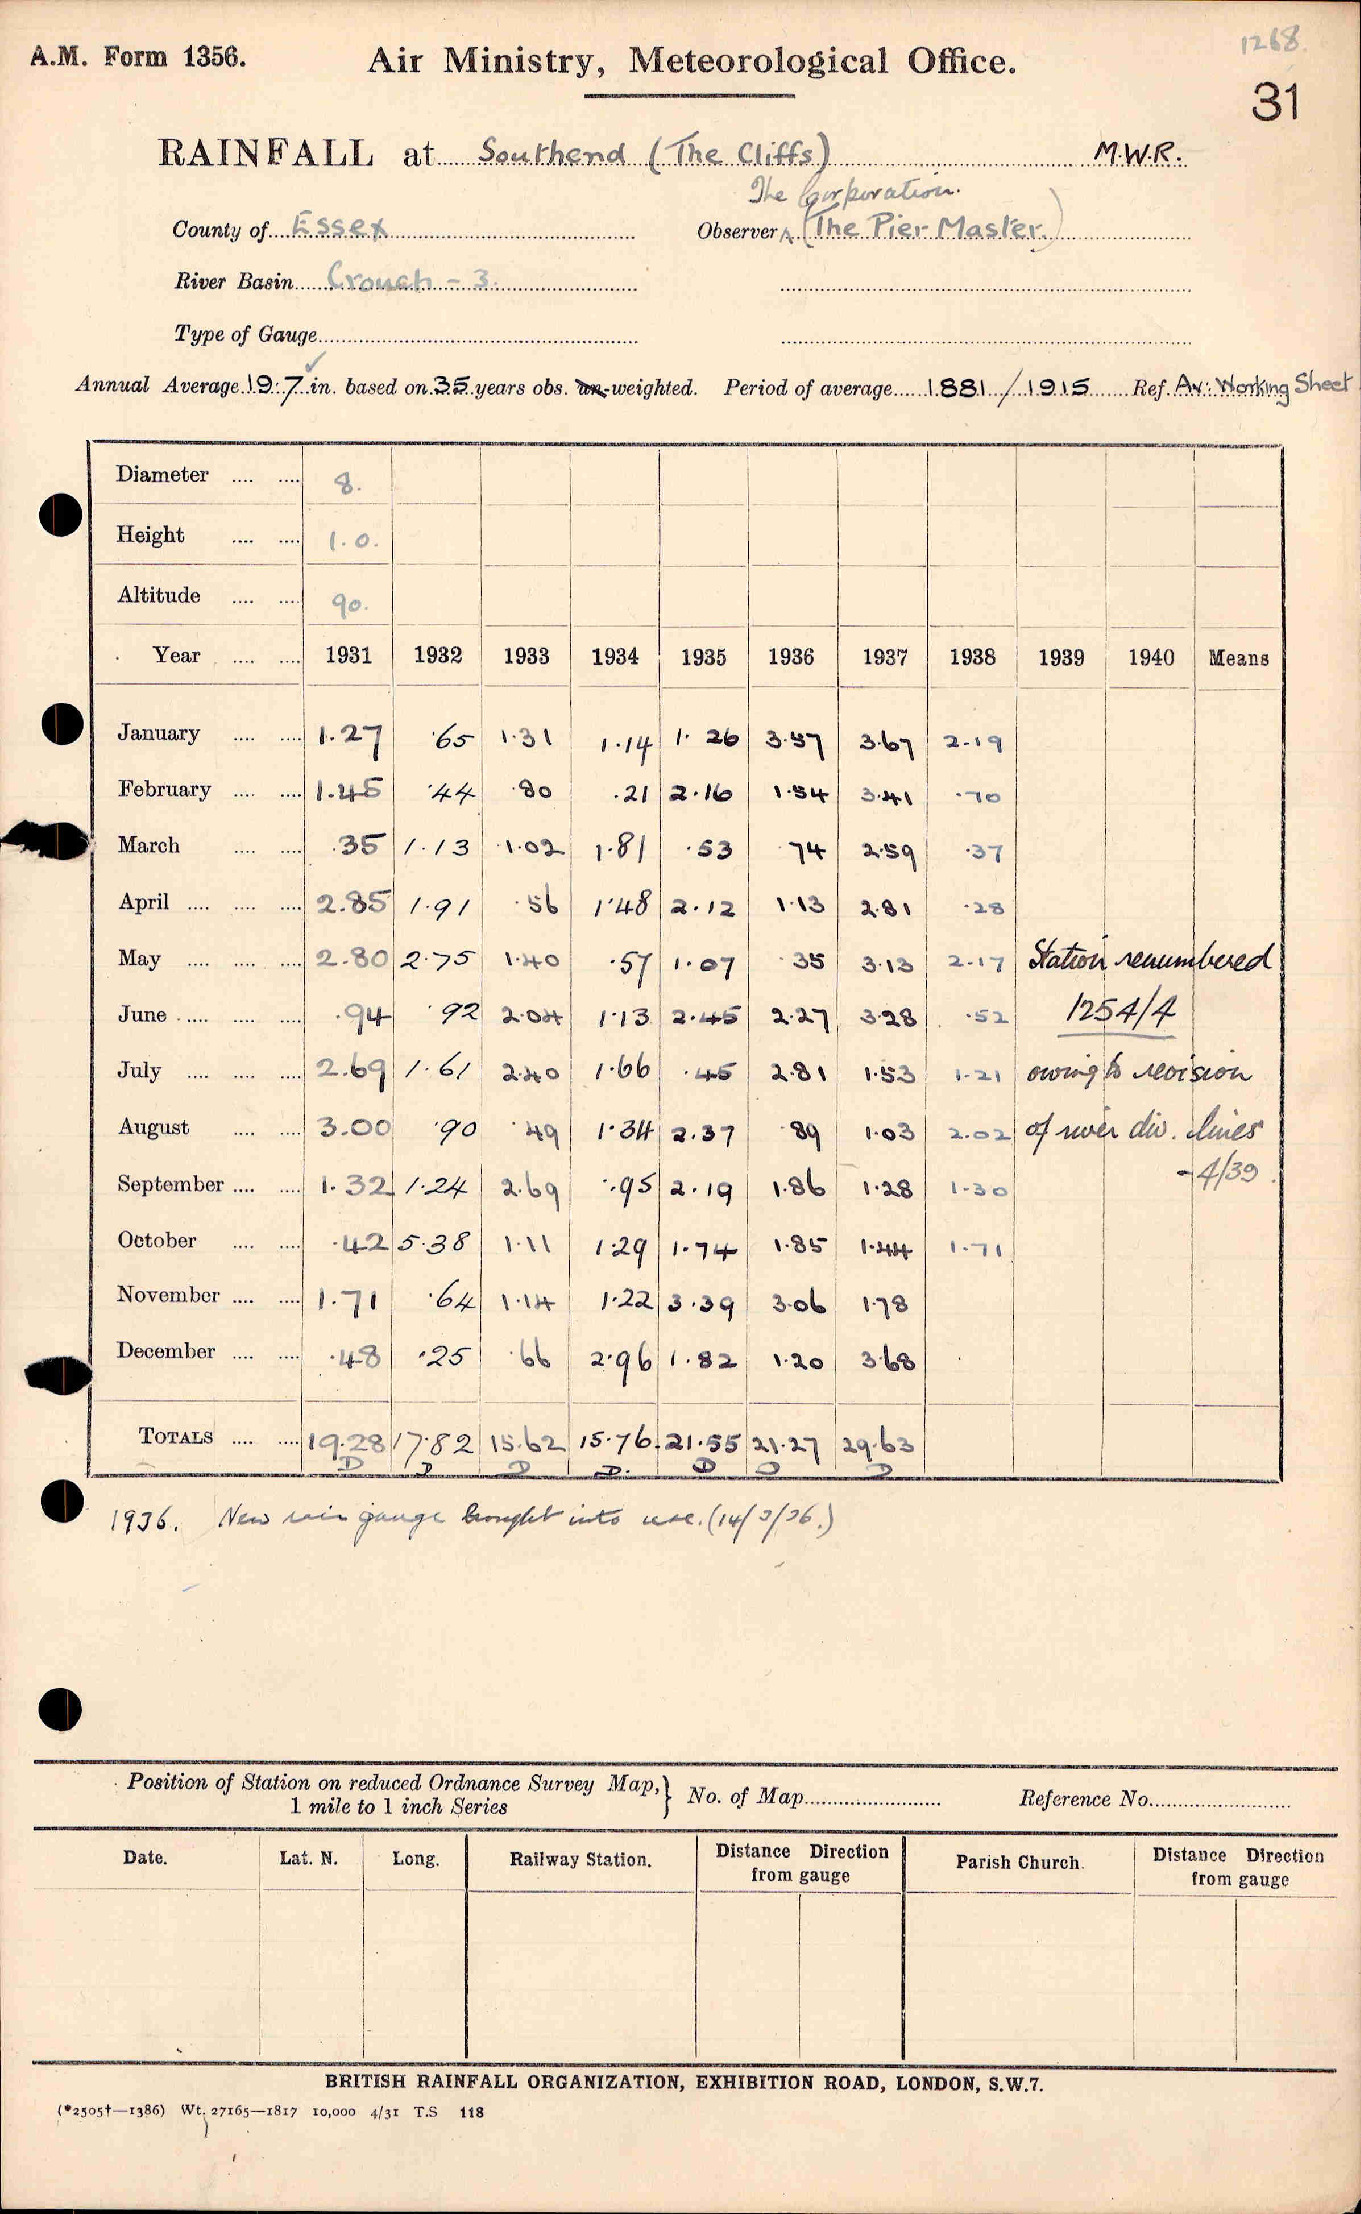 1268.
A.M. Form 1356. Air Ministry, Meteorological Office.
31
RAINFALL at Southend (The Cliffs) M.W.R.
The Corporation.
County of Essex Observer (The Pier Master.)
River Basin Crouch - 3.
Type of Gauge
Annual Average 19.7 in. based on 35 years obs. un-weighted. Period of average 1881/1915 Ref. Av: Working Sheet
Diameter 8.
Height 1.0.
Altitude 90.
Year 1931 1932 1933 1934 1935 1936 1937 1938 1939 1940 Means
January 1.27 .65 1.31 1.14 1.26 3.57 3.67 2.19
February 1.45 .44 .80 .21 2.16 1.54 3.41 .70
March .35 1.13 1.02 1.81 .53 .74 2.59 .37
April 2.85 1.91 .56 1.48 2.12 1.13 2.81 .28
May 2.80 2.75 1.40 .57 1.07 .35 3.13 2.17 Station renumbered
June .94 .92 2.04 1.13 2.45 2.27 3.28 .52 1254/4
July 2.69 1.61 2.40 1.66 .45 2.81 1.53 1.21 owing to revision
August 3.00 .90 .49 1.34 2.37 .89 1.03 2.02 of river div. lines
September 1.32 1.24 2.69 .95 2.19 1.86 1.28 1.30 - 4/39.
October .42 5.38 1.11 1.29 1.74 1.85 1.44 1.71
November 1.71 .64 1.14 1.22 3.39 3.06 1.78
December .48 .25 .66 2.96 1.82 1.20 3.68
TOTALS 19.28 17.82 15.62 15.76 21.55 21.27 29.63
D D D D. D D D
1936. New rain gauge brought into use. (14/3/36.)
Position of Station on reduced Ordnance Survey Map, } No. of Map Reference No.
1 mile to 1 inch Series
Date. Lat. N. Long. Railway Station. Distance Direction from gauge Parish Church. Distance Direction from gauge
BRITISH RAINFALL ORGANIZATION, EXHIBITION ROAD, LONDON, S.W.7.
(*2505†—1386) Wt. 27165—1817 10,000 4/31 T.S 118